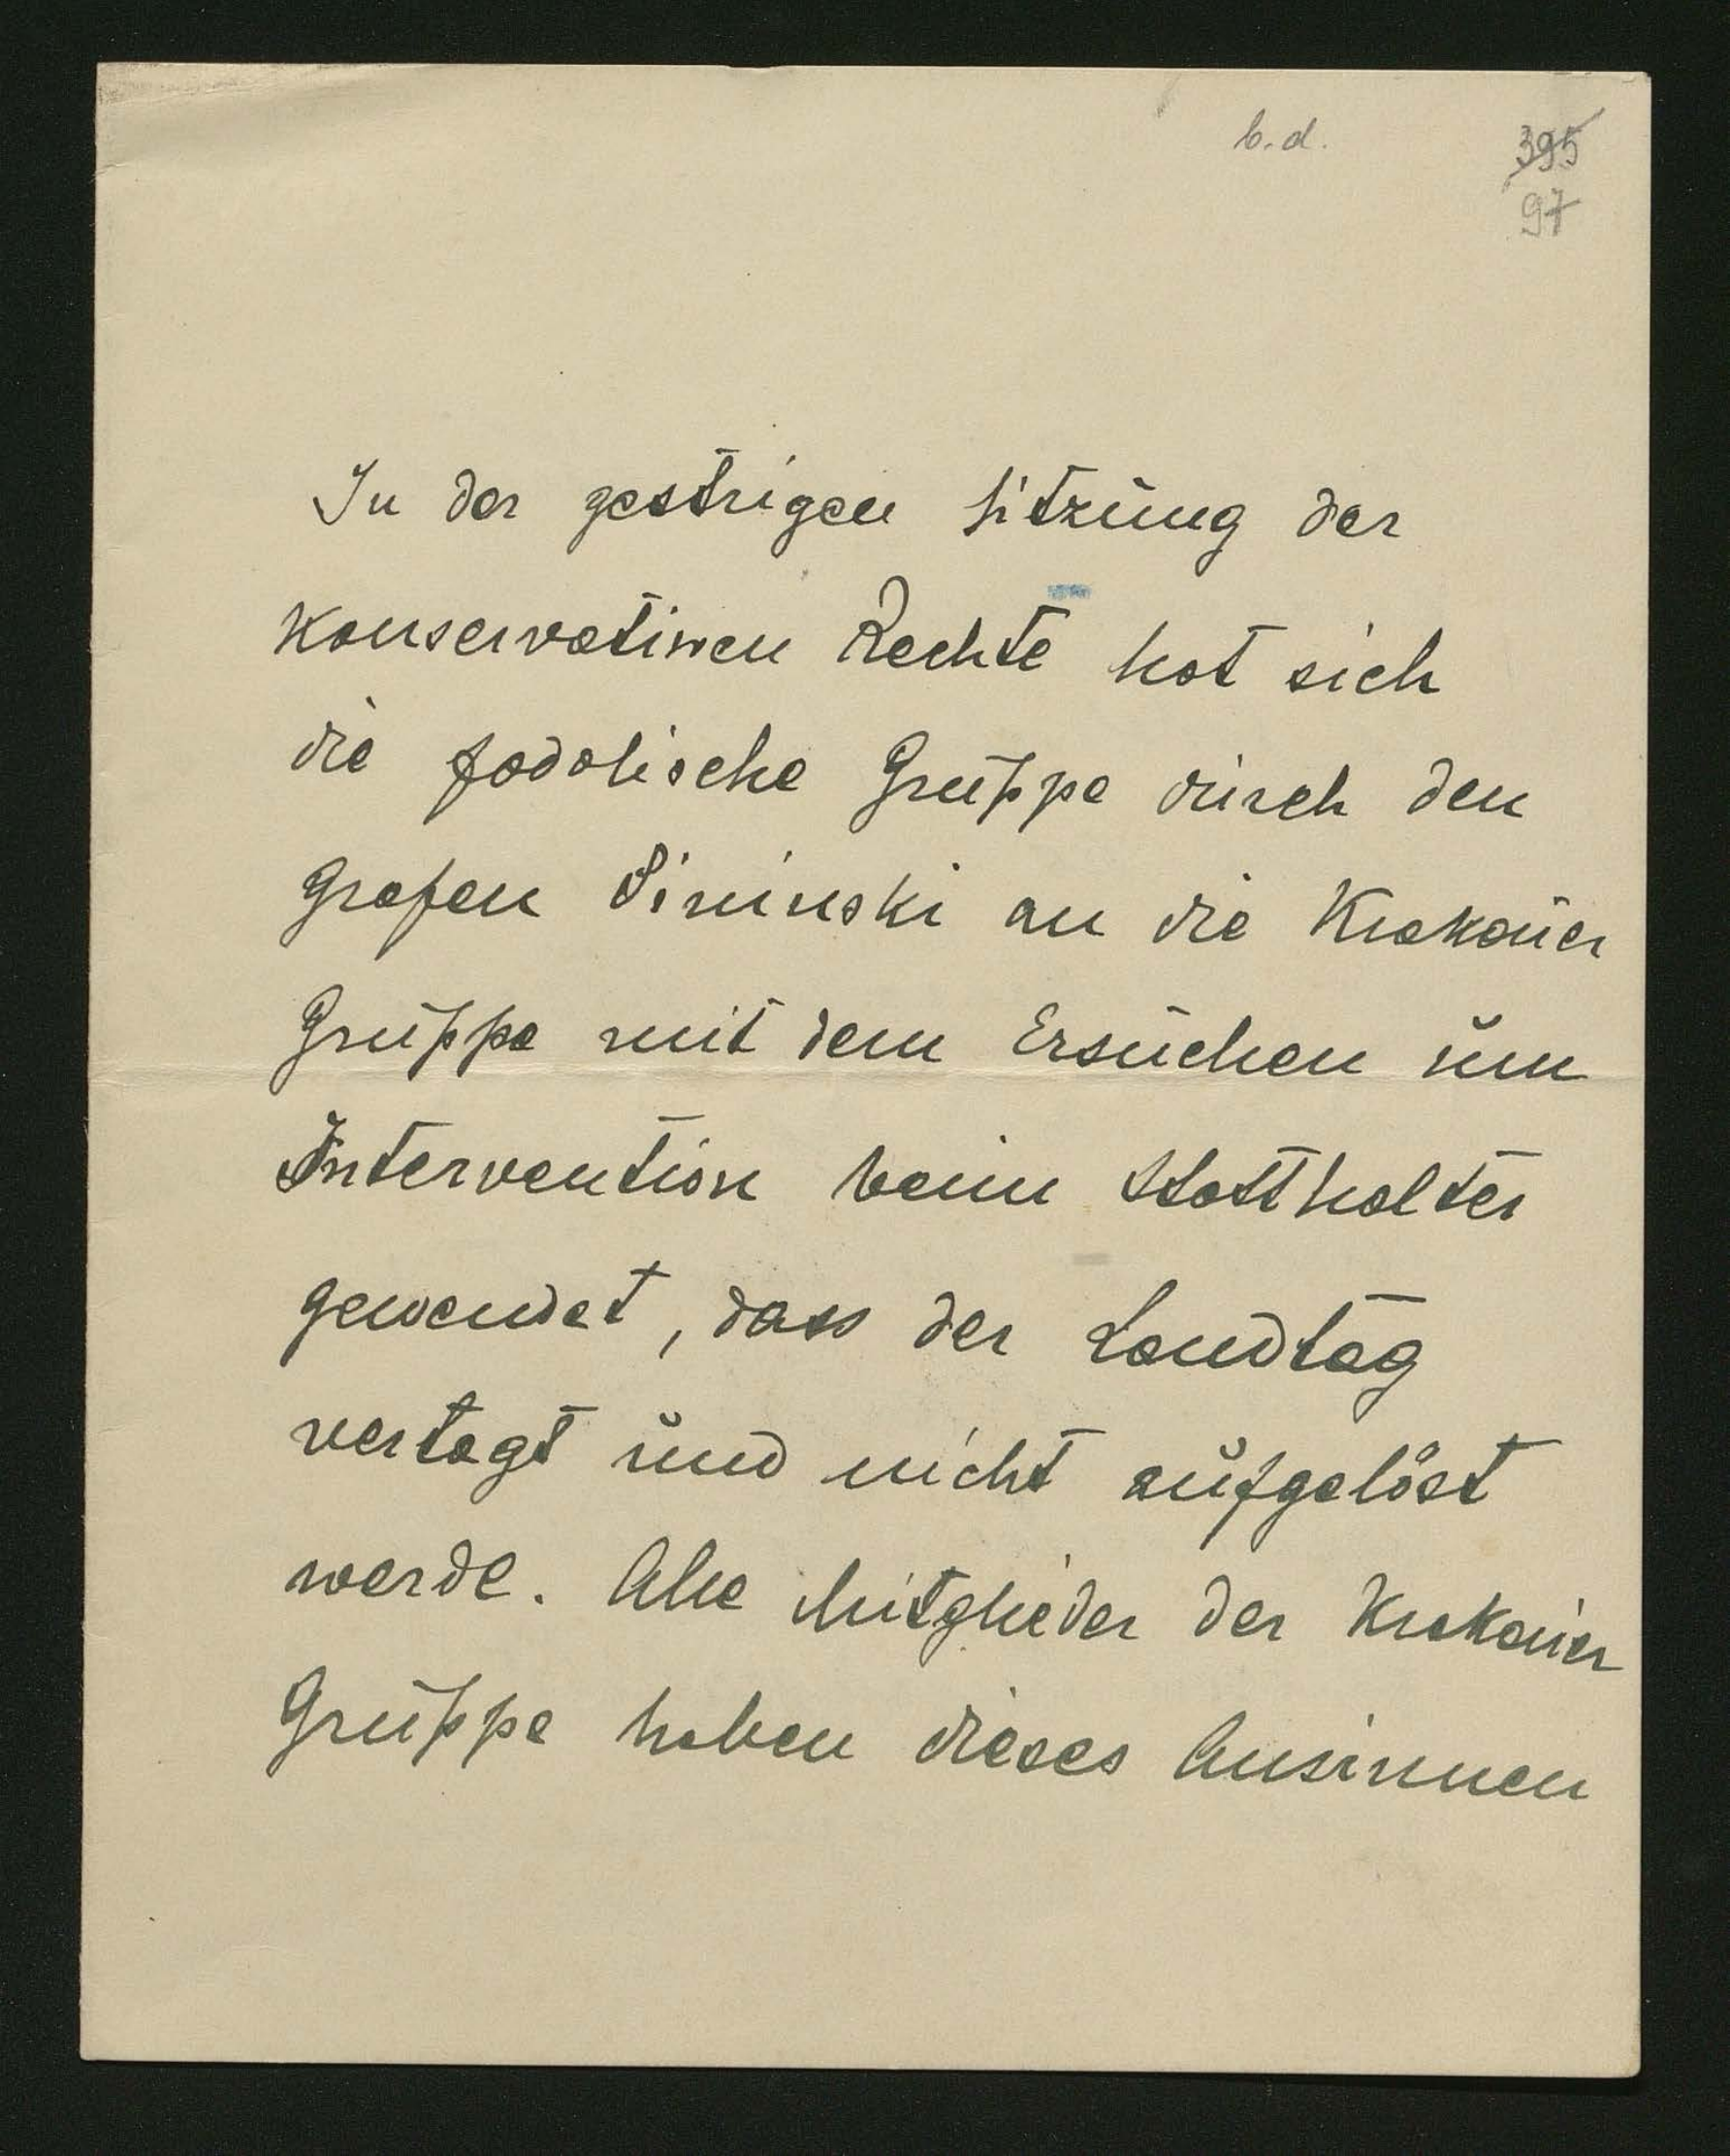 b.d.
395
97
In der gestrigen Sitzung der
Konservativen Rechte hat sich
die podolische Gruppe durch den
Grafen Pininski an die Krakauer
Gruppe mit dem Ersuchen um
Intervention beim Statthalter
gewendet, dass der Landtag
vertagt und nicht aufgelöst
werde. Alle Mitglieder der Krakauer
Gruppe haben dieses Ansinnen